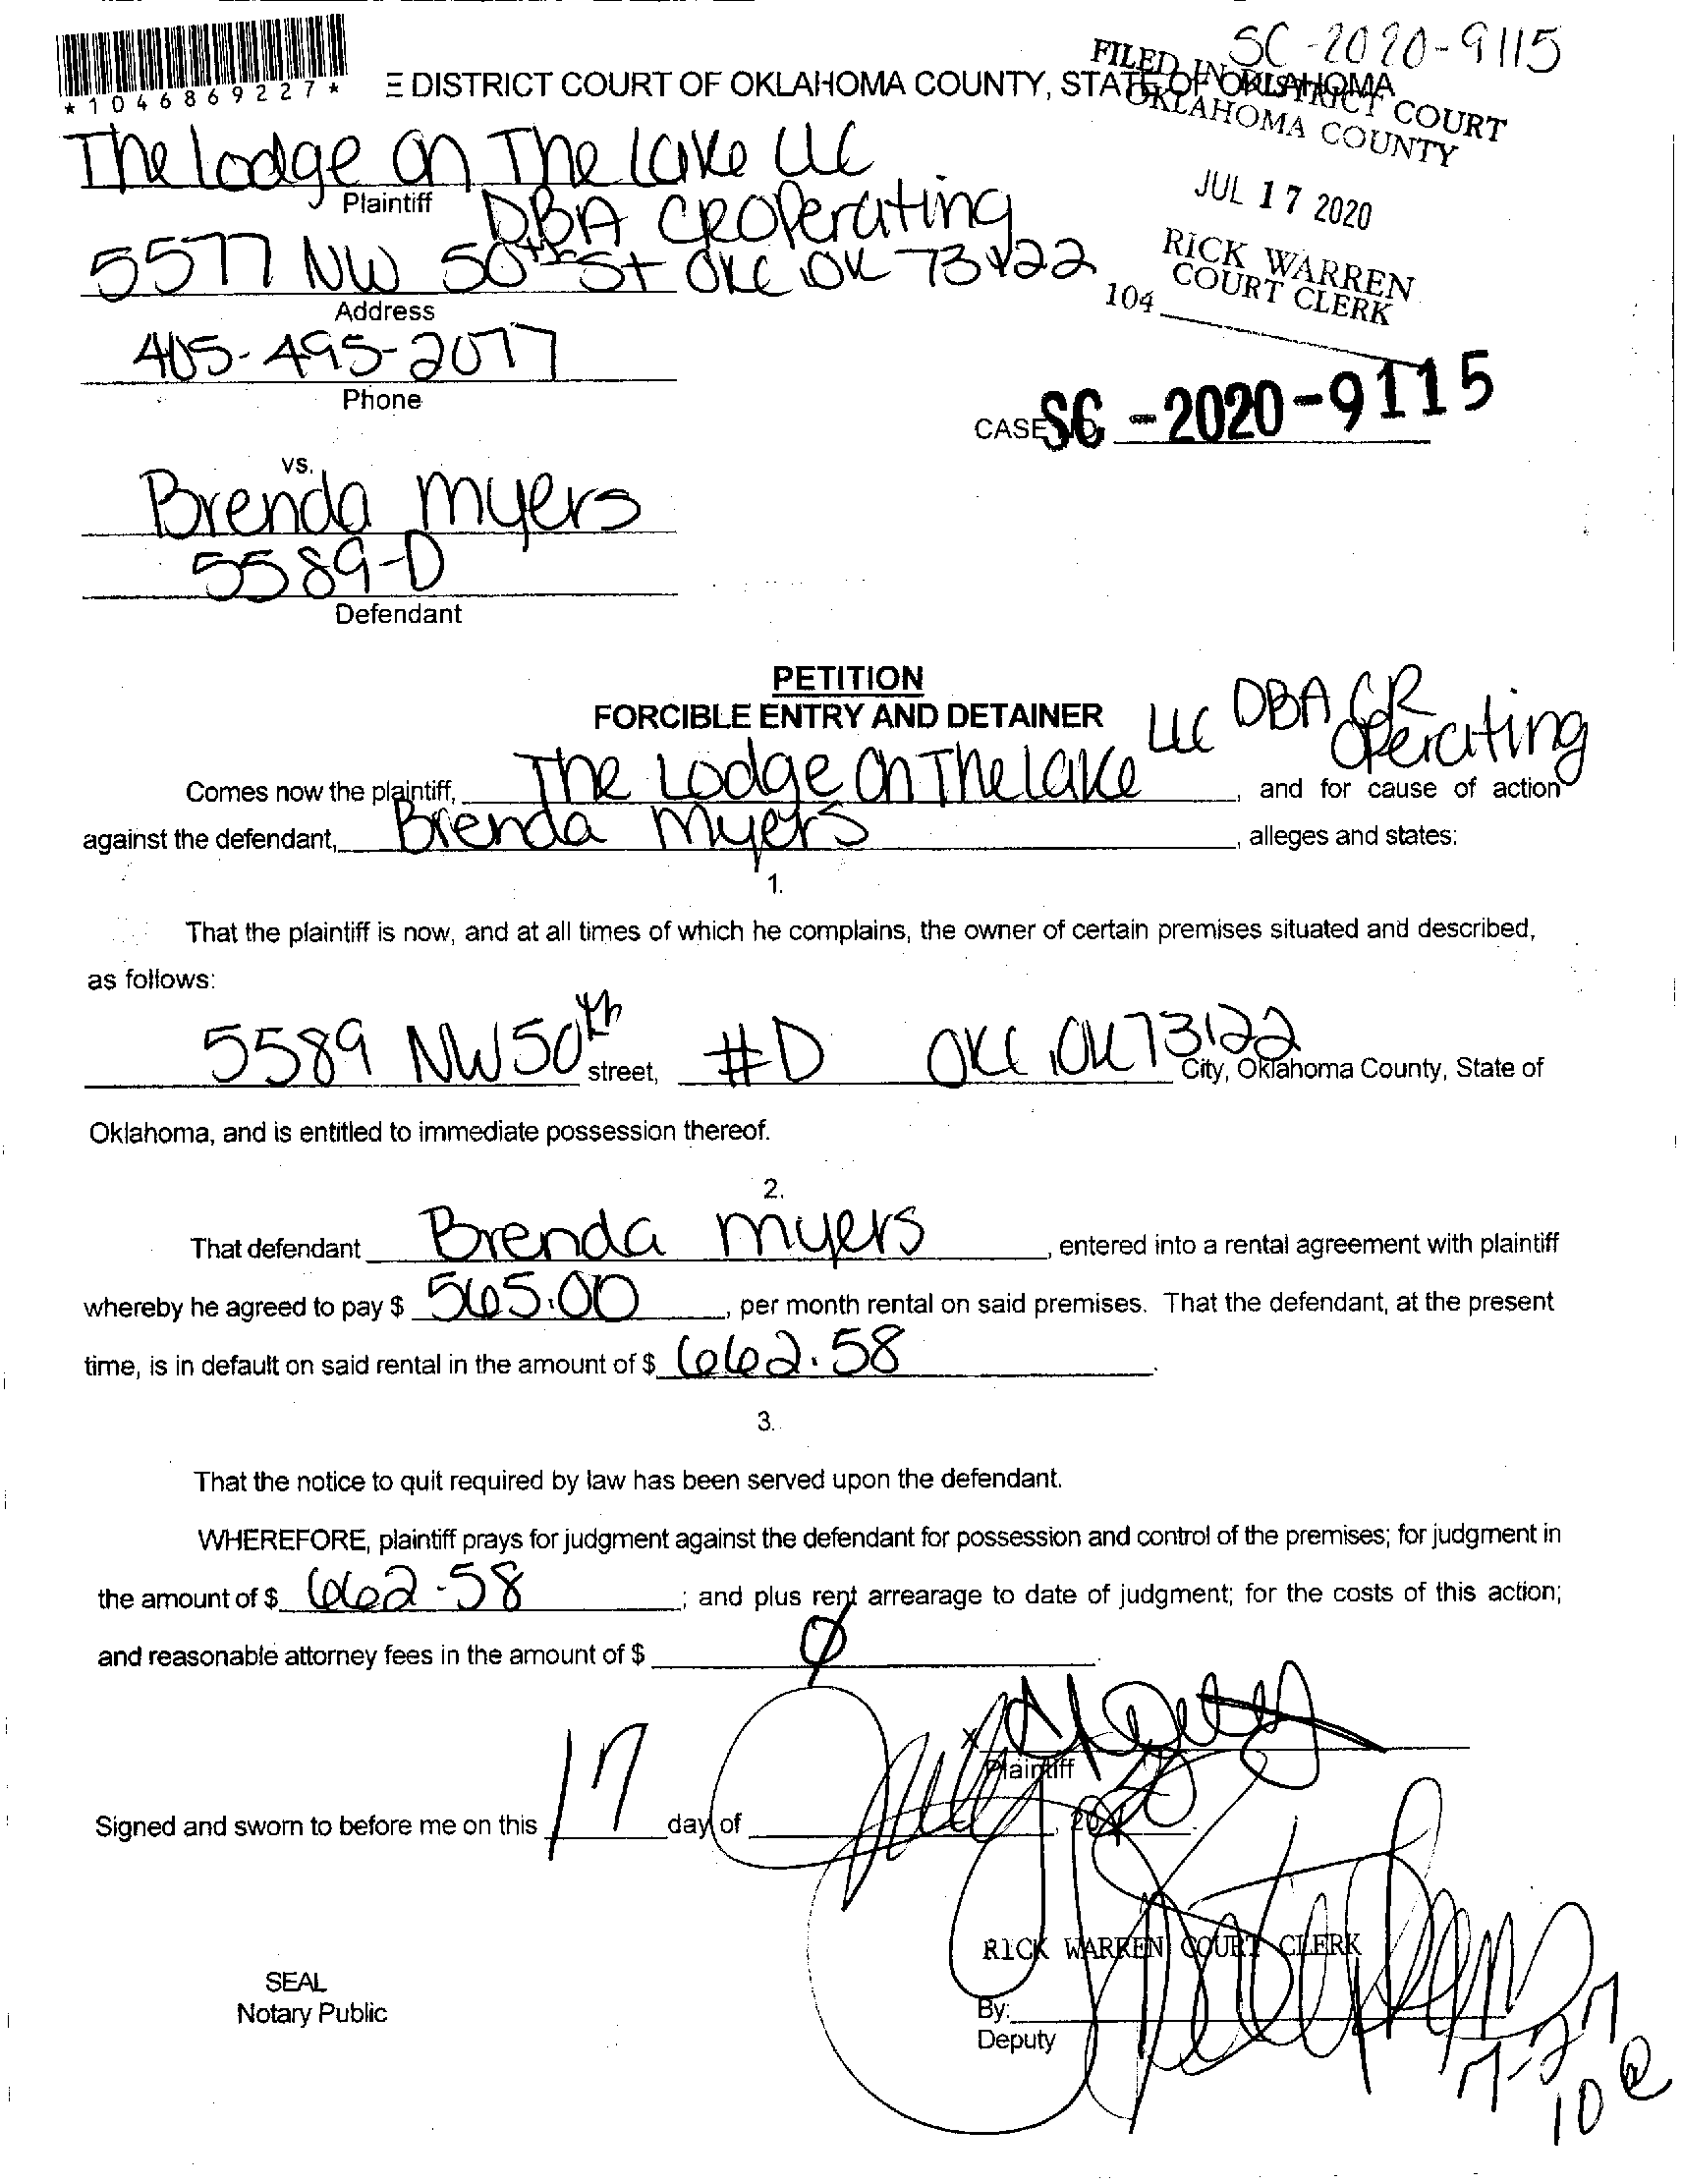 SC-2020-9115
*1046869227*
E DISTRICT COURT OF OKLAHOMA COUNTY, STATE OF OKLAHOMA
FILED IN DISTRICT COURT
OKLAHOMA COUNTY
JUL 17 2020
RICK WARREN
COURT CLERK
104
The Lodge On The Lake LLC
Plaintiff
DBA CROperating
5577 NW 50th St OKC OK 73122
Address
405-495-2077
Phone
CASE NO. SC -2020-9115
vs.
Brenda Myers
5589-D
Defendant
PETITION
FORCIBLE ENTRY AND DETAINER
Comes now the plaintiff, The Lodge On The Lake LLC DBA CR Operating, and for cause of action
against the defendant, Brenda Myers, alleges and states:
1.
That the plaintiff is now, and at all times of which he complains, the owner of certain premises situated and described,
as follows:
5589 NW 50th street, #D OKC OK 73122 City, Oklahoma County, State of
Oklahoma, and is entitled to immediate possession thereof.
2.
That defendant Brenda Myers, entered into a rental agreement with plaintiff
whereby he agreed to pay $ 565.00, per month rental on said premises. That the defendant, at the present
time, is in default on said rental in the amount of $ 662.58.
3.
That the notice to quit required by law has been served upon the defendant.
WHEREFORE, plaintiff prays for judgment against the defendant for possession and control of the premises; for judgment in
the amount of $ 662.58; and plus rent arrearage to date of judgment; for the costs of this action;
and reasonable attorney fees in the amount of $ Ø.
x
Plaintiff
Signed and sworn to before me on this 17 day of July, 2020.
RICK WARREN COURT CLERK
SEAL
Notary Public
By:
Deputy
7-27
10